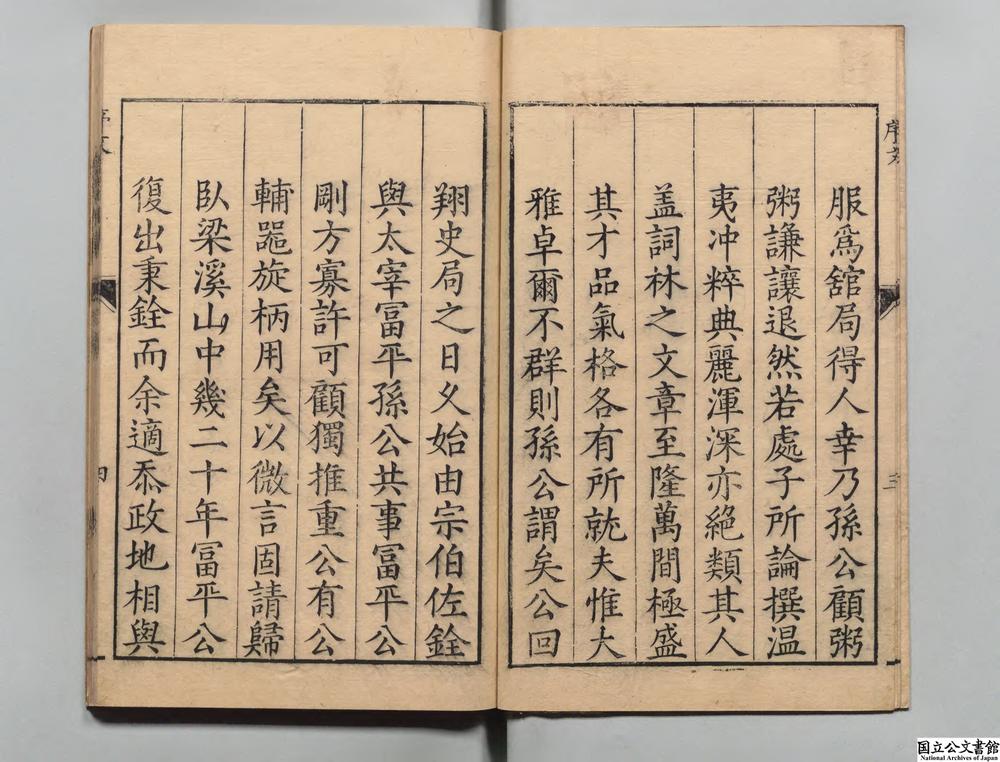 服爲舘局得人幸乃孫公顧粥
粥謙讓退然若處子所論撰温
夷冲粹典麗渾深亦絕類其人
盖詞林之文章至隆萬間極盛
其才品氣格各有所就夫惟大
雅卓爾不群則孫公謂矣公回
翔史局之日久始由宗伯佐銓
與太宰冨平孫公共事冨平公
剛方寡許可顧獨推重公有公
輔噐旋柄用矣以微言固請歸
臥梁溪山中幾二十年冨平公
復出秉銓而余適忝政地相與
序文
三
四
国立公文書館
National Archives of Japan